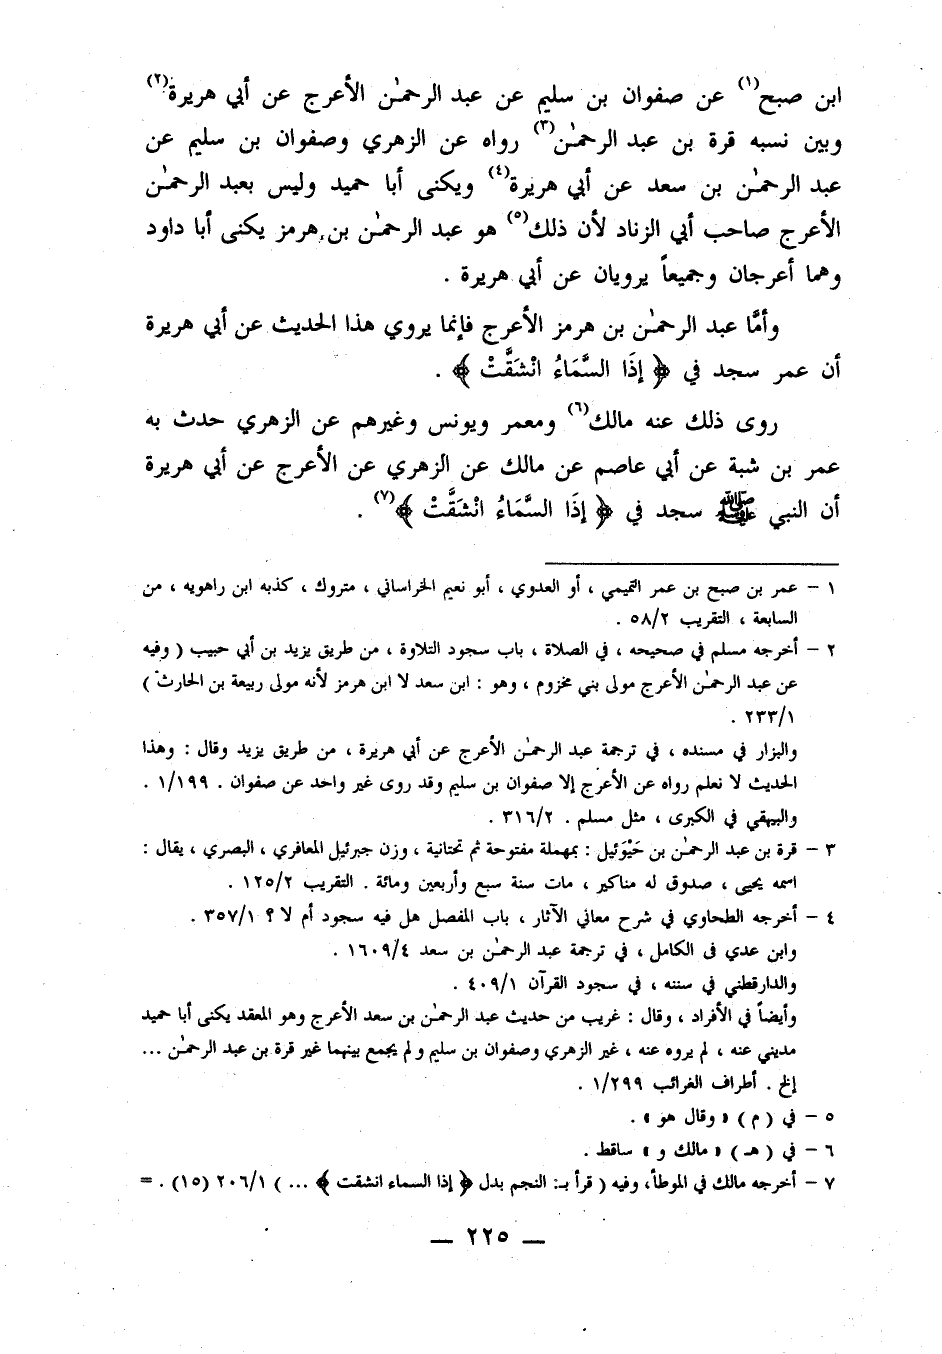 ابن صبح(١) عن صفوان بن سليم عن عبد الرحمٰن الأعرج عن أبي هريرة(٢)
وبين نسبه قرة بن عبد الرحمٰن(٣) رواه عن الزهري وصفوان بن سليم عن
عبد الرحمٰن بن سعد عن أبي هريرة(٤) ويكنى أبا حميد وليس بعبد الرحمٰن
الأعرج صاحب أبي الزناد لأن ذلك(٥) هو عبد الرحمٰن بن هرمز يكنى أبا داود
وهما أعرجان وجميعاً يرويان عن أبي هريرة .
وأمَّا عبد الرحمٰن بن هرمز الأعرج فإنما يروي هذا الحديث عن أبي هريرة
أن عمر سجد في ﴿ إِذَا السَّمَاءُ انْشَقَّتْ ﴾ .
روى ذلك عنه مالك(٦) ومعمر ويونس وغيرهم عن الزهري حدث به
عمر بن شبة عن أبي عاصم عن مالك عن الزهري عن الأعرج عن أبي هريرة
أن النبي ﷺ سجد في ﴿ إِذَا السَّمَاءُ انْشَقَّتْ ﴾(٧) .
١ – عمر بن صبح بن عمر التميمي ، أو العدوي ، أبو نعيم الخراساني ، متروك ، كذبه ابن راهويه ، من
السابعة ، التقريب ٥٨/٢ .
٢ – أخرجه مسلم في صحيحه ، في الصلاة ، باب سجود التلاوة ، من طريق يزيد بن أبي حبيب ( وفيه
عن عبد الرحمٰن الأعرج مولى بني مخزوم ، وهو : ابن سعد لا ابن هرمز لأنه مولى ربيعة بن الحارث )
٢٣٣/١ .
والبزار في مسنده ، في ترجمة عبد الرحمٰن الأعرج عن أبي هريرة ، من طريق يزيد وقال : وهذا
الحديث لا نعلم رواه عن الأعرج إلا صفوان بن سليم وقد روى غير واحد عن صفوان . ١/١٩٩ .
والبيهقي في الكبرى ، مثل مسلم . ٣١٦/٢ .
٣ – قرة بن عبد الرحمٰن بن حَيْوَئيل : بمهملة مفتوحة ثم تحتانية ، وزن جبرئيل المعافري ، البصري ، يقال :
اسمه يحيى ، صدوق له مناكير ، مات سنة سبع وأربعين ومائة . التقريب ١٢٥/٢ .
٤ – أخرجه الطحاوي في شرح معاني الآثار ، باب المفصل هل فيه سجود أم لا ؟ ٣٥٧/١ .
وابن عدي فى الكامل ، في ترجمة عبد الرحمٰن بن سعد ١٦٠٩/٤ .
والدارقطني في سننه ، في سجود القرآن ٤٠٩/١ .
وأيضاً في الأفراد ، وقال : غريب من حديث عبد الرحمٰن بن سعد الأعرج وهو المقعد يكنى أبا حميد
مديني عنه ، لم يروه عنه ، غير الزهري وصفوان بن سليم ولم يجمع بينهما غير قرة بن عبد الرحمٰن ...
إلخ . أطراف الغرائب ١/٢٩٩ .
٥ – في ( م ) « وقال هو » .
٦ – في ( هـ ) « مالك و » ساقط .
٧ – أخرجه مالك في الموطأ، وفيه ( قرأ بـ: النجم بدل ﴿ إذا السماء انشقت ﴾ ... ) ٢٠٦/١ (١٥) . =
— ٢٢٥ —